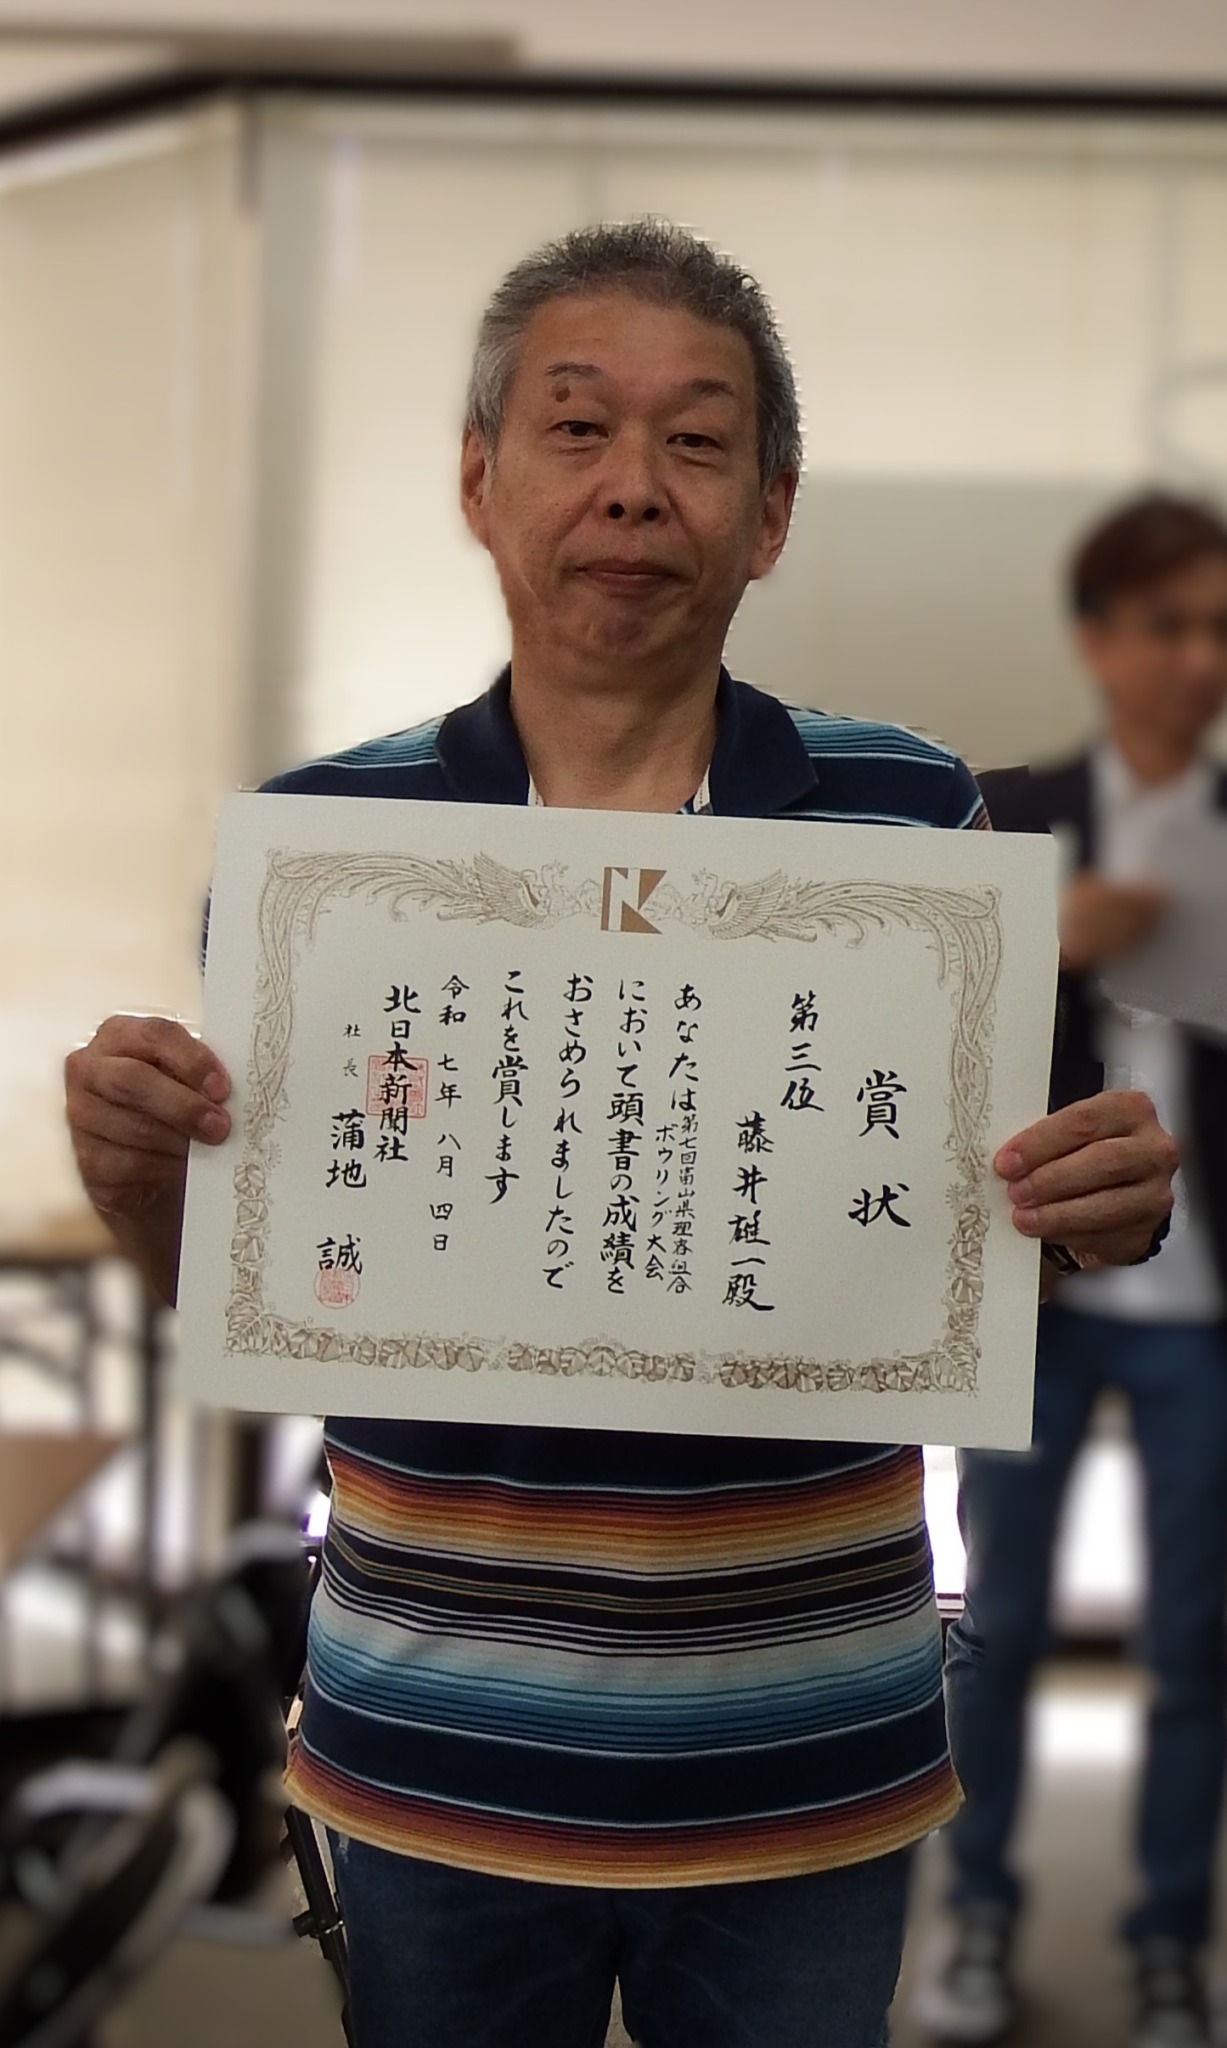 賞状
第三位
藤井雄一殿
あなたは第七回富山県理容組合
ボウリング大会
において頭書の成績を
おさめられましたので
これを賞します
令和七年八月四日
北日本新聞社
社長 蒲地 誠